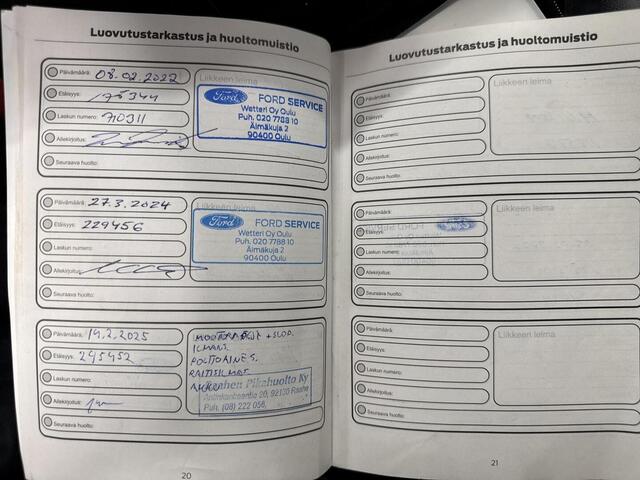 Luovutustarkastus ja huoltomuistio
Päivämäärä: 08.02.2022
Etäisyys: 175344
Laskun numero: 710311
Allekirjoitus:
Seuraava huolto:
Liikkeen leima
Ford FORD SERVICE
Wetteri Oy Oulu
Puh. 020 7788 10
Äimäkuja 2
90400 Oulu
Päivämäärä: 27.3.2024
Etäisyys: 229456
Laskun numero:
Allekirjoitus:
Seuraava huolto:
Liikkeen leima
Ford FORD SERVICE
Wetteri Oy Oulu
Puh. 020 7788 10
Äimäkuja 2
90400 Oulu
Päivämäärä: 14.2.2025
Etäisyys: 245452
Laskun numero:
Allekirjoitus:
Seuraava huolto:
+ SUOD.
ILMANS.
POLTTOAINES.
Pikahuolto Ky
20, 92130 Raahe
Puh. (08) 222 056,
20
Luovutustarkastus ja huoltomuistio
Päivämäärä:
Etäisyys:
Laskun numero:
Allekirjoitus:
Seuraava huolto:
Liikkeen leima
Päivämäärä:
Etäisyys:
Laskun numero:
Allekirjoitus:
Seuraava huolto:
Liikkeen leima
Päivämäärä:
Etäisyys:
Laskun numero:
Allekirjoitus:
Seuraava huolto:
Liikkeen leima
21